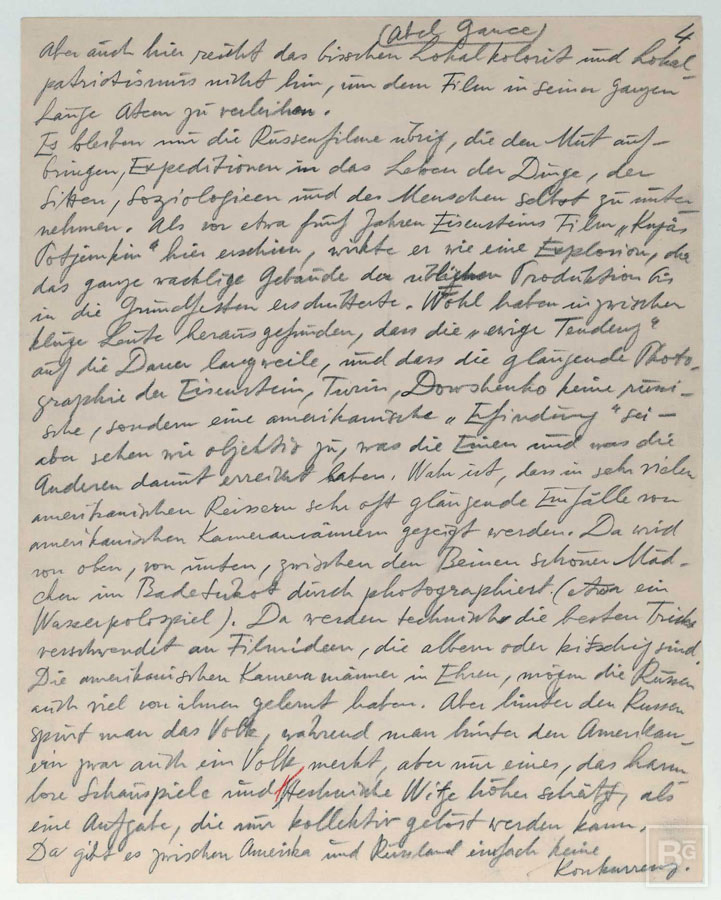 (Abel Gance) 4
Aber auch hier reicht das bisschen Lokalkolorit und Lokal-
patriotismus nicht hin, um dem Film in seiner ganzen
Länge Atem zu verleihen.
Es bleiben nur die Russenfilme übrig, die den Mut auf-
bringen, Expeditionen in das Leben der Dinge, der
Sitten, Soziologieen und des Menschen selbst zu unter
nehmen. Als vor etwa fünf Jahren Eisensteins Film „Knjäs
Potjemkin" hier erschien, wirkte er wie eine Explosion, die
das ganze wacklige Gebäude der üblichen Produktion bis
in die Grundfesten erschütterte. Wohl haben inzwischen
kluge Leute herausgefunden, dass die „ewige Tendenz"
auf die Dauer langweile, und dass die glänzende Photo-
graphie der Eisenstein, Turin, Dowshenko keine russi-
sche, sondern eine amerikanische „Erfindung" sei –
aber sehen wir objektiv zu, was die Einen und was die
Anderen damit erreicht haben. Wahr ist, dass in sehr vielen
amerikanischen Reissern sehr oft glänzende Einfälle von
amerikanischen Kameramännern gezeigt werden. Da wird
von oben, von unten, zwischen den Beinen schöner Mäd-
chen im Badetrikot durch photographiert (etwa ein
Wasserpolospiel). Da werden technisch die besten Tricks
verschwendet an Filmideen, die albern oder kitschig sind.
Die amerikanischen Kameramänner in Ehren, mögen die Russen
auch viel von ihnen gelernt haben. Aber hinter den Russen
spürt man das Volk, während man hinter den Amerikan-
ern zwar auch ein Volk merkt, aber nur eines, das harm
lose Schauspiele und technische Witze höher schätzt, als
eine Aufgabe, die nur kollektiv gelöst werden kann.
Da gibt es zwischen Amerika und Russland einfach keine
Konkurrenz.
BG